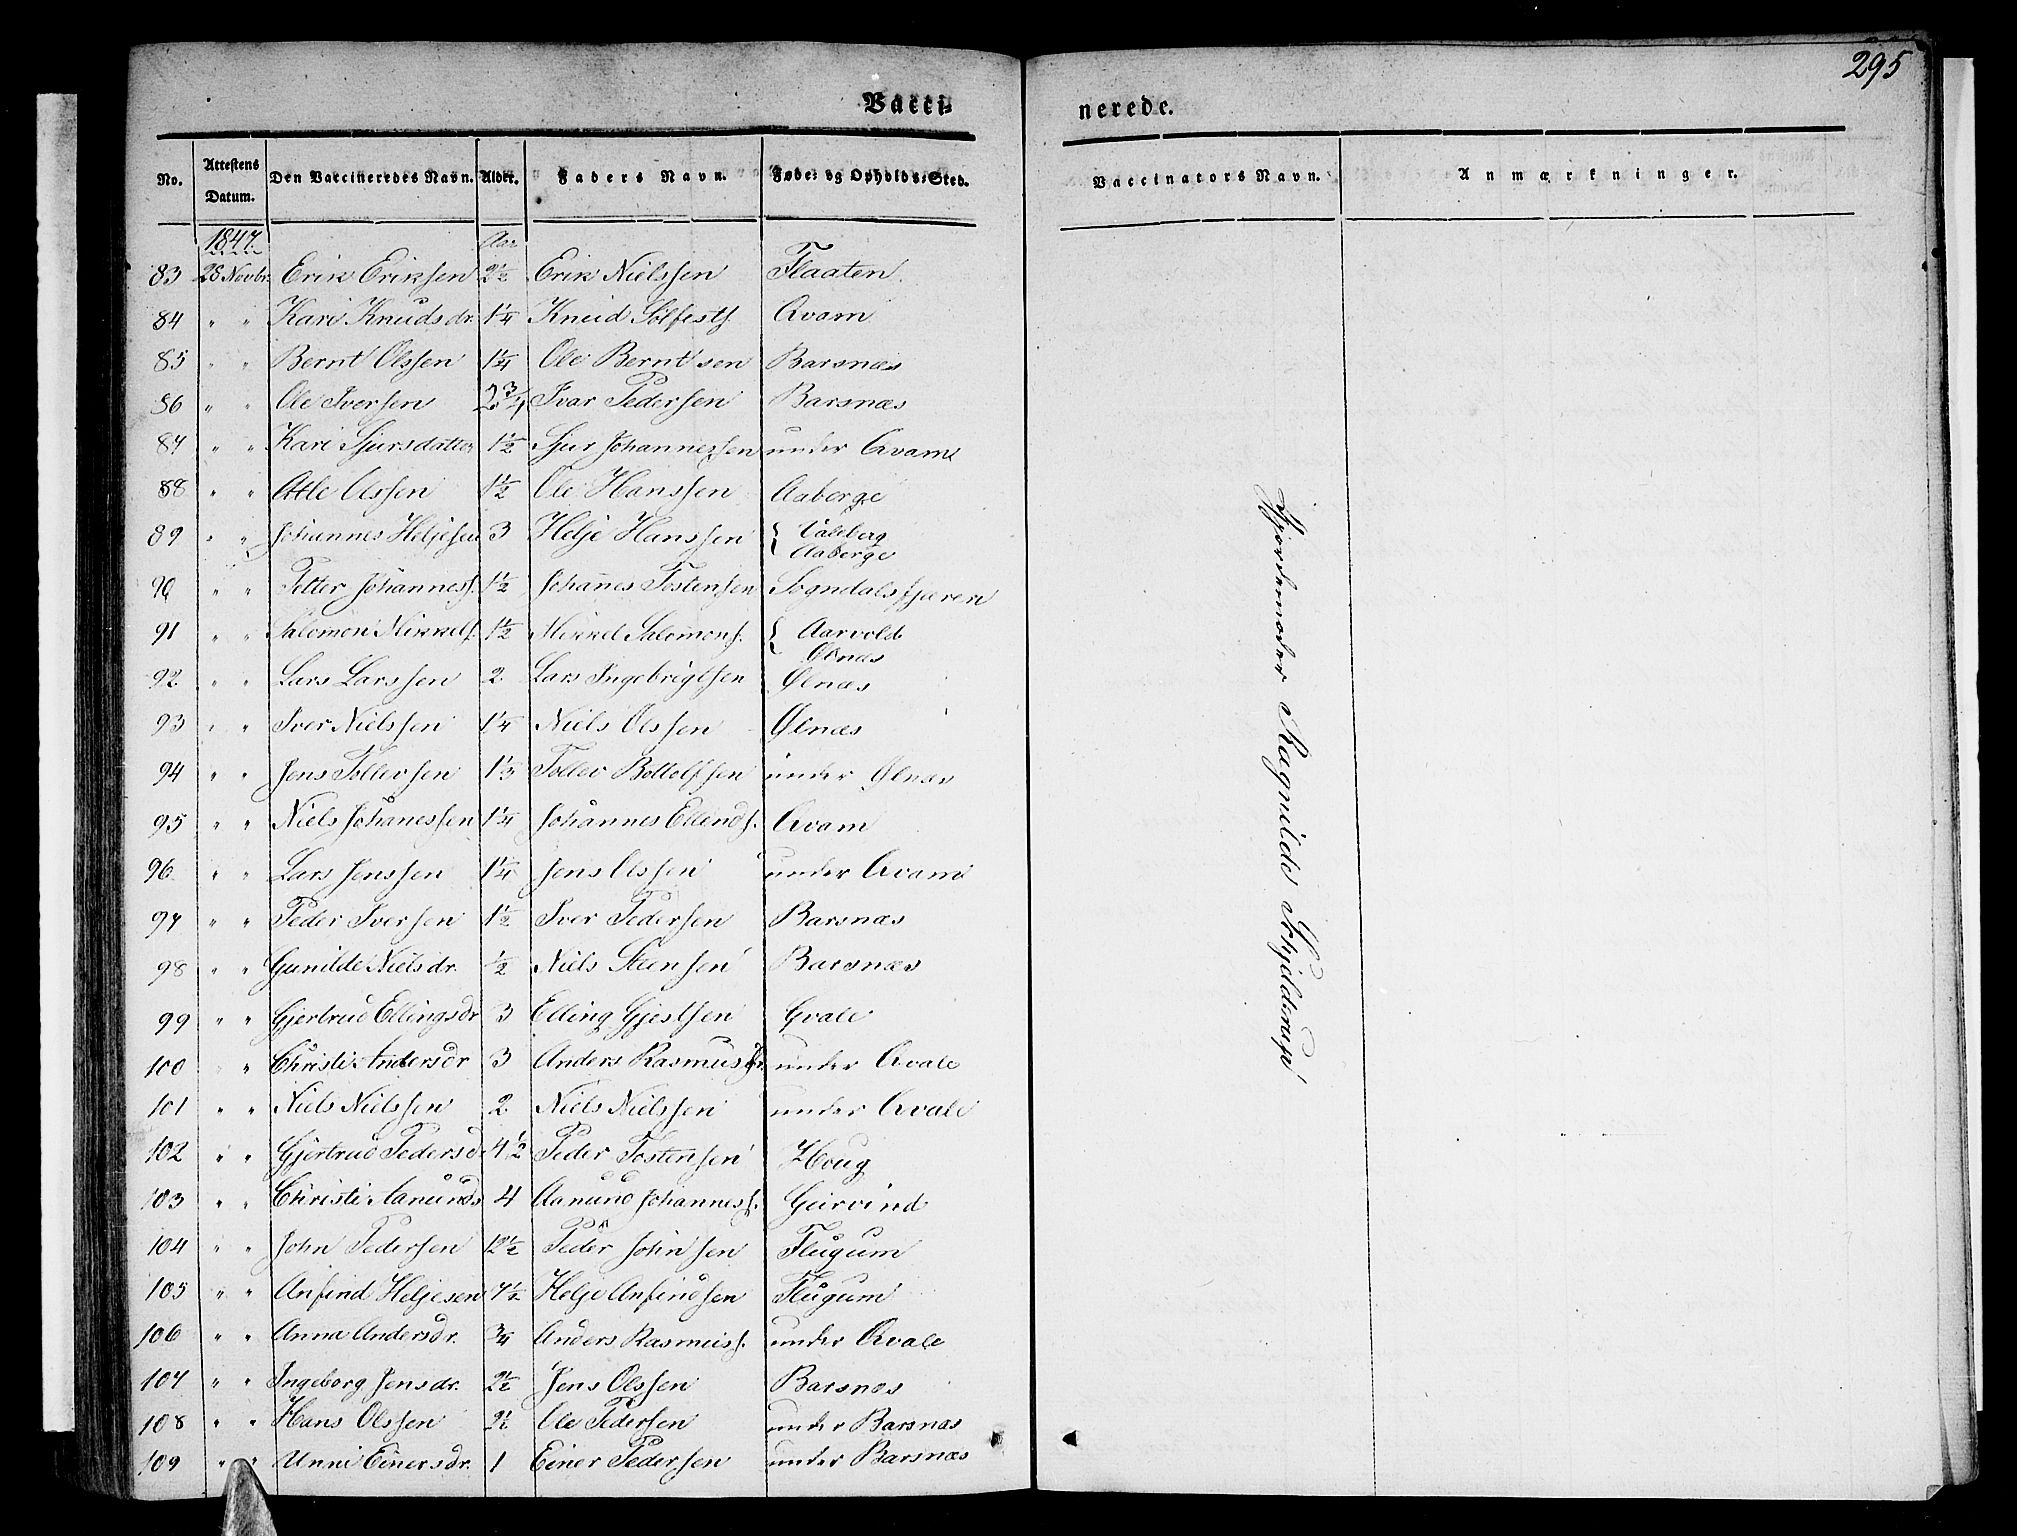 295
Vacci-
nerede.
No. Attestens Datum. Den Vaccineredes Navn. Alder. Faders Navn. Føde- og Opholds-Sted. Vaccinators Navn. Anmærkninger.
1847. Aar
83 28 Novbr. Erik Eriksen 2½ Erik Nielssen Flaaten.
84 " " Kari Knudsdr. 1¼ Knud Sølfests. Qvam
85 " " Bernt Olssen 1¼ Ole Berntsen Barsnæs
86 " " Ole Iversen 2¾ Ivar Pedersen Barsnæs
87 " " Kari Sjursdatter 1½ Sjur Johannessen under Qvam
88 " " Atle Olssen 1½ Ole Hanssen Aaberge
89 " " Johannes Heljesen 3 Helje Hanssen { Valeberg
Aaberge
90 " " Petter Johanness. 1½ Johan̄es Tostensen Sogndalsfjæren
91 " " Salomon Mikkels. 1½ Mikkel Salomons. { Aarvold
Ølnæs
92 " " Lars Larssen 2 Lars Ingebrigtsen Ølnæs
93 " " Iver Nielssen 1¼ Niels Olssen Ølnæs
94 " " Jens Tollersen 1⅓ Toller Bottolfsen under Ølnæs
95 " " Niels Johanessen 1¼ Johannes Ellends. Qvam
96 " " Lars Jenssen 1¼ Jens Olssen under Qvam
97 " " Peder Iversen 1½ Iver Pedersen Barsnæs
98 " " Gunilde Nielsdr. ½ Niels Steensen Barsnæs
99 " " Gjertrud Ellingsdr 3 Elling Gjestsen Qvale
100 " " Christi Andersdr 3 Anders Rasmuss. under Qvale
101 " " Niels Nielssen 2 Niels Nielssen under Qvale
102 " " Gjertrud Pedersd. 4½ Peder Tostensen Houg
103 " " Christi Aamunds 4 Aamund Johanness. Geirvind
104 " " John Pedersen 12½ Peder Johnsen Flugum
105 " " Anfind Heljesen 7½ Helje Anfindsen Flugum
106 " " Anna Andersdr. ¾ Anders Rasmuss. under Qvale
107 " " Ingeborg Jensdr. 2½ Jens Olssen Barsnæs
108 " " Hans Olssen 2½ Ole Pedersen under Barsnæs
109 " " Unni Einersdr. 1 Einer Pedersen under Barsnæs
Gjordemoder Ragnilde Schjelderup